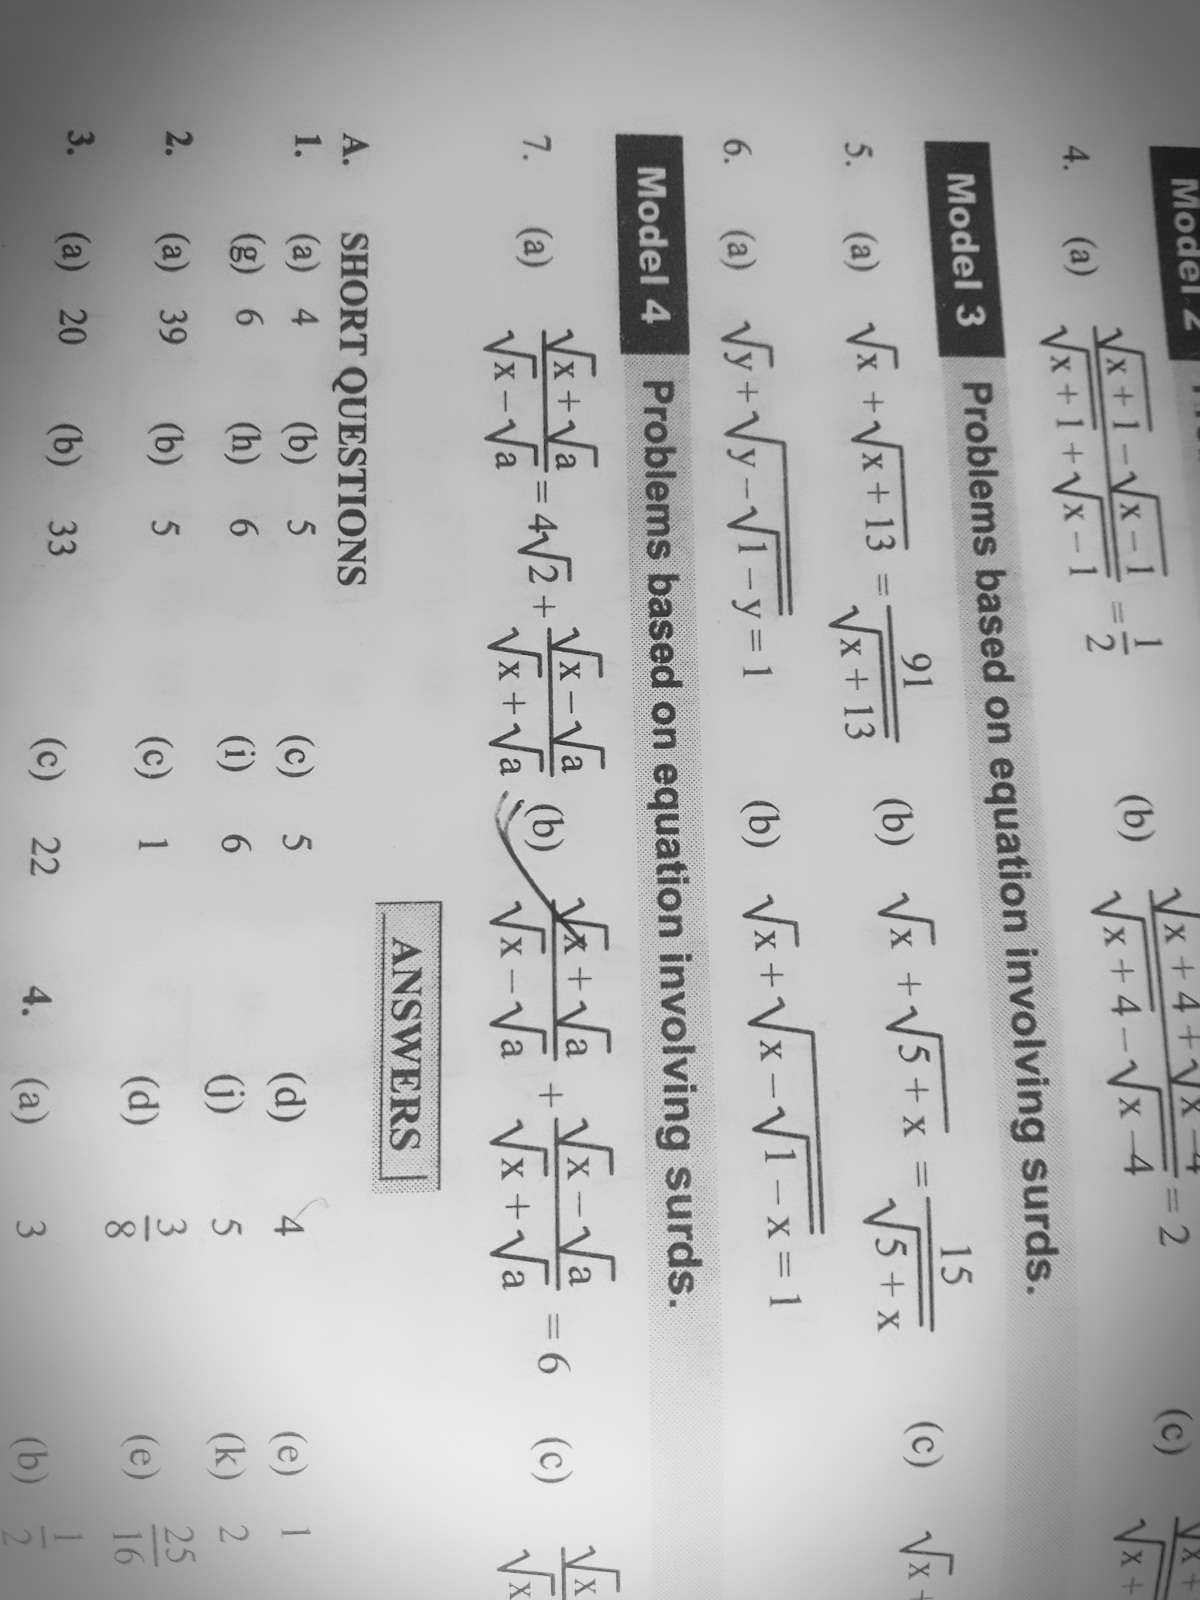 Model 2
4. (a) \frac{\sqrt{x+1}-\sqrt{x-1}}{\sqrt{x+1}+\sqrt{x-1}} = \frac{1}{2} (b) \frac{\sqrt{x+4}+\sqrt{x-4}}{\sqrt{x+4}-\sqrt{x-4}} = 2 (c)
Model 3 Problems based on equation involving surds.
5. (a) \sqrt{x}+\sqrt{x+13} = \frac{91}{\sqrt{x+13}} (b) \sqrt{x}+\sqrt{5+x} = \frac{15}{\sqrt{5+x}} (c) \sqrt{x}+
6. (a) \sqrt{y}+\sqrt{y-\sqrt{1-y}} = 1 (b) \sqrt{x}+\sqrt{x-\sqrt{1-x}} = 1
Model 4 Problems based on equation involving surds.
7. (a) \frac{\sqrt{x}+\sqrt{a}}{\sqrt{x}-\sqrt{a}} = 4\sqrt{2}+\frac{\sqrt{x}-\sqrt{a}}{\sqrt{x}+\sqrt{a}} (b) \frac{\sqrt{x}+\sqrt{a}}{\sqrt{x}-\sqrt{a}}+\frac{\sqrt{x}-\sqrt{a}}{\sqrt{x}+\sqrt{a}} = 6 (c)
ANSWERS
A. SHORT QUESTIONS
1. (a) 4 (b) 5 (c) 5 (d) 4 (e) 1
(g) 6 (h) 6 (i) 6 (j) 5 (k) 2
2. (a) 39 (b) 5 (c) 1 (d) \frac{3}{8} (e) \frac{25}{16}
3. (a) 20 (b) 33 (c) 22 4. (a) 3 (b) \frac{1}{2}